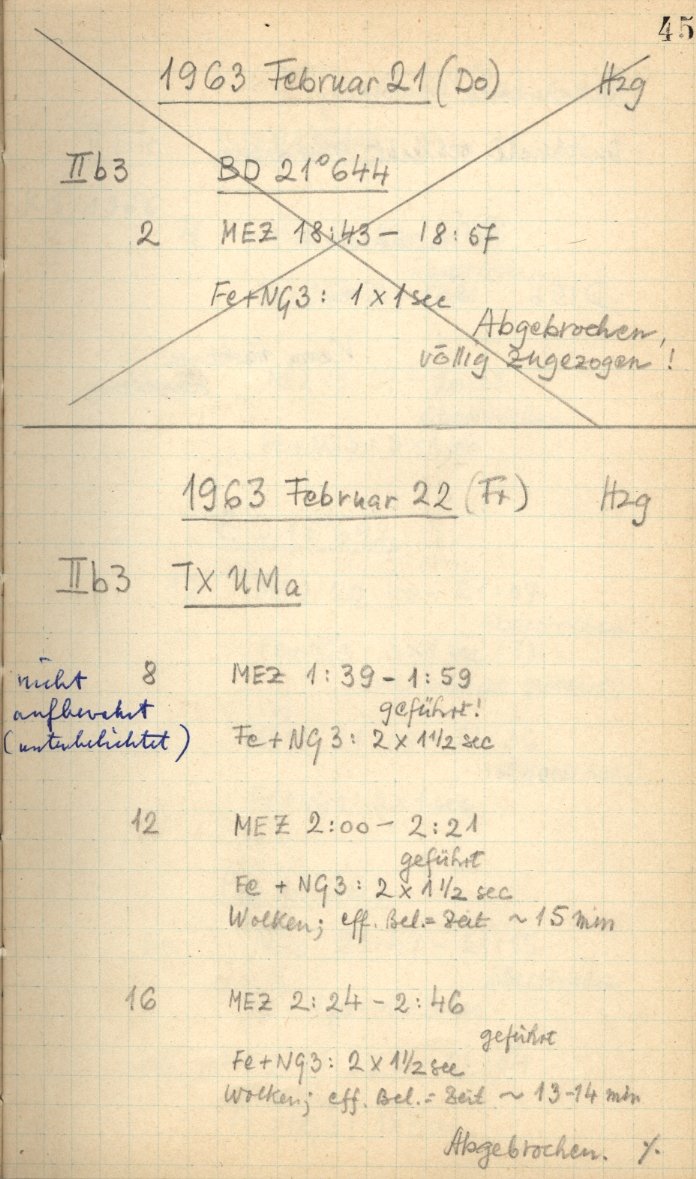 45
1963 Februar 21 (Do) Hzg
IIb3 BD 21°644
2 MEZ 18:43 – 18:57
Fe+NG3: 1 x 1 sec
Abgebrochen,
völlig zugezogen!
1963 Februar 22 (Fr) Hzg
IIb3 TX UMa
nicht 8 MEZ 1:39 – 1:59
aufbewahrt geführt!
(unterbelichtet) Fe+NG3: 2 x 1 1/2 sec
12 MEZ 2:00 – 2:21
geführt
Fe + NG3: 2 x 1 1/2 sec
Wolken; eff. Bel.=Zeit ~ 15 min
16 MEZ 2:24 – 2:46
geführt
Fe+NG3: 2 x 1 1/2 sec
Wolken; eff. Bel.=Zeit ~ 13-14 min
Abgebrochen. ./.